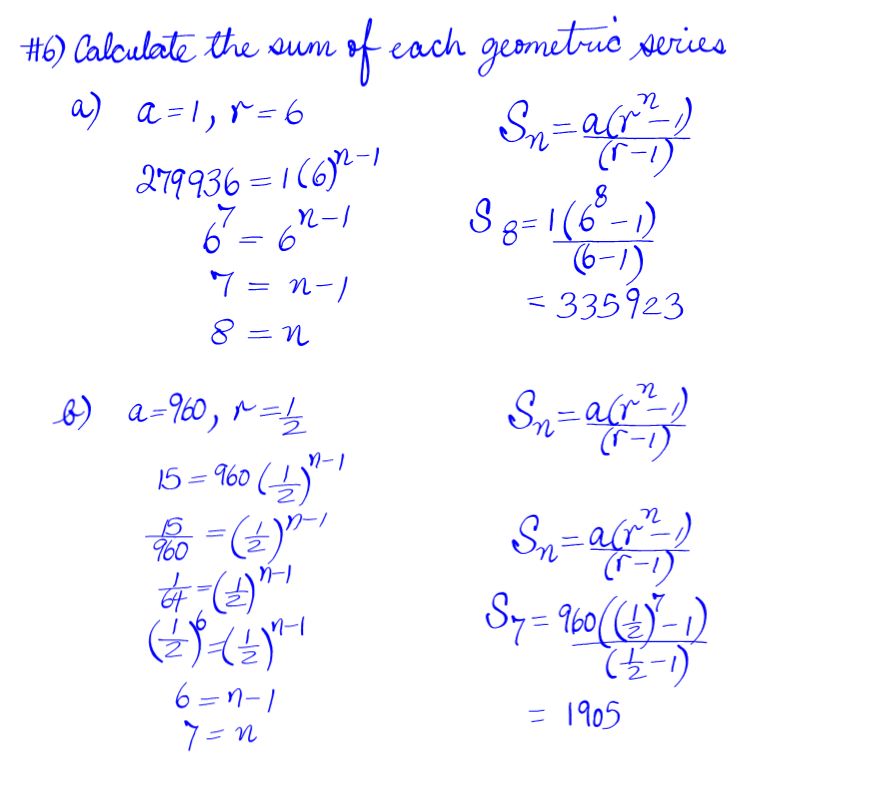 #6) Calculate the sum of each geometric series
a) a=1, r=6
279936 = 1(6)^{n-1}
6^7 = 6^{n-1}
7 = n-1
8 = n
S_n = a(r^n-1)/(r-1)
S_8 = 1(6^8-1)/(6-1)
= 335923
b) a=960, r=1/2
15 = 960(1/2)^{n-1}
15/960 = (1/2)^{n-1}
1/64 = (1/2)^{n-1}
(1/2)^6 = (1/2)^{n-1}
6 = n-1
7 = n
S_n = a(r^n-1)/(r-1)
S_n = a(r^n-1)/(r-1)
S_7 = 960((1/2)^7-1)/(1/2-1)
= 1905